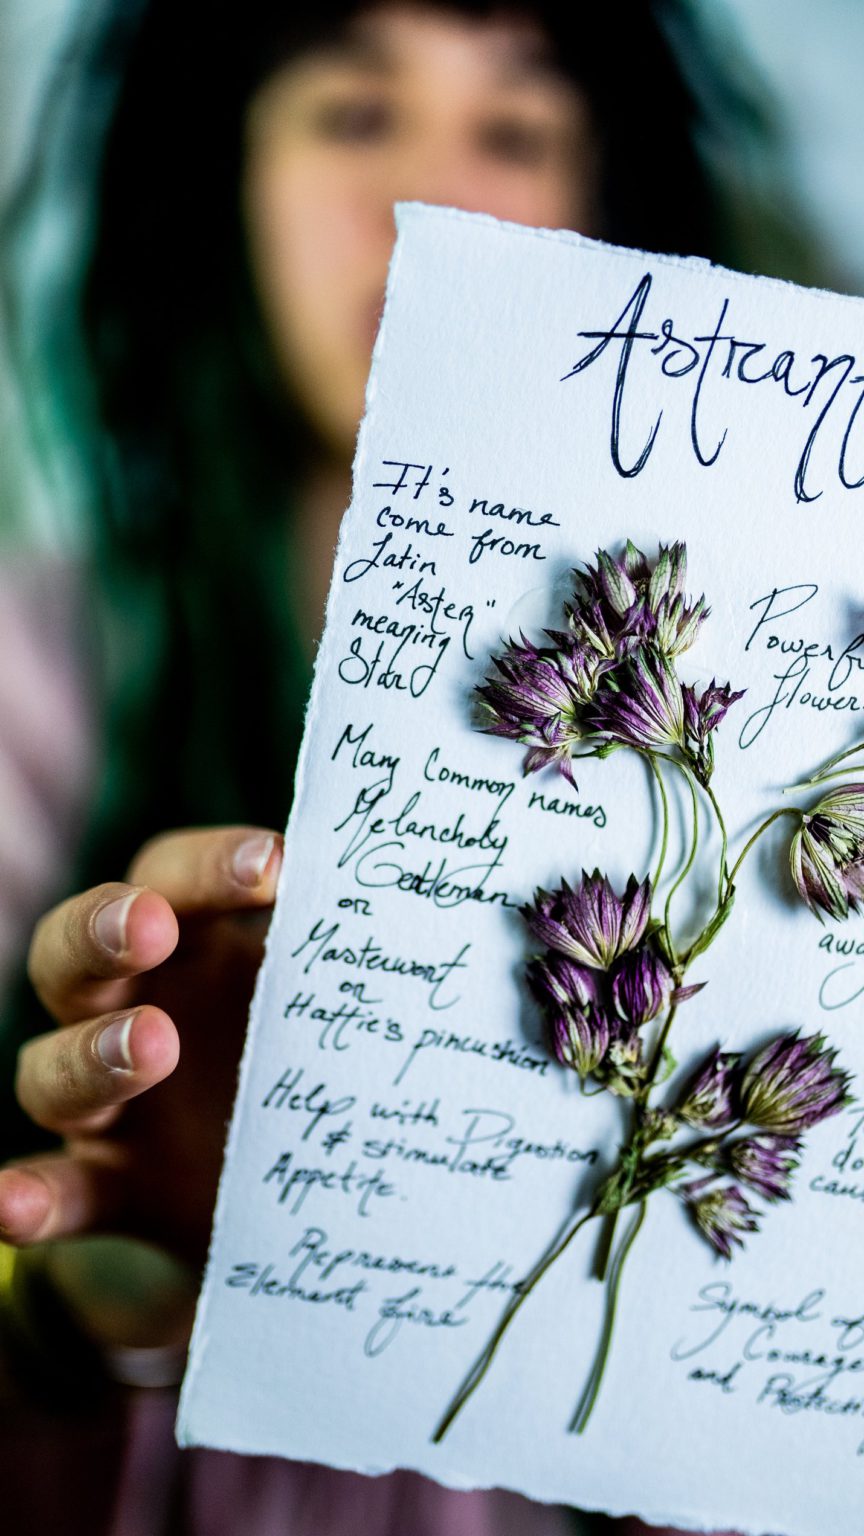 Astrant
It's name
come from
Latin
"Aster"
meaning
Star
Many Common names
Melancholy
Gentleman
or
Masterwort
or
Hattie's pincushion
Help with Digestion
& stimulate
Appetite.
Represent the
Element fire
Powerf
flower
awa
do
cau
Symbol of
Courage
and Protect